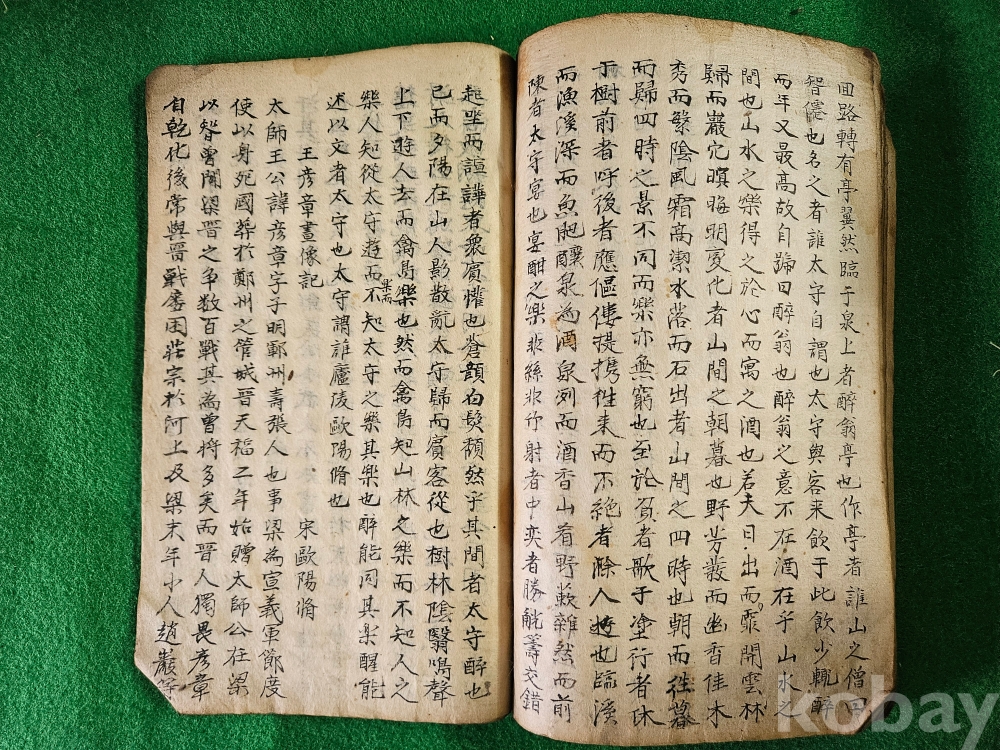 回路轉有亭翼然臨于泉上者醉翁亭也作亭者誰山之僧曰
智僊也名之者誰太守自謂也太守與客来飲于此飲少輒醉
而年又最高故自歸曰醉翁也醉翁之意不在酒在乎山水之
間也山水之樂得之於心而寓之酒也若夫日出而霏開雲林
歸而巖穴暝晦明変化者山間之朝暮也野芳發而幽香佳木
秀而繁陰風霜高潔水落而石出者山間之四時也朝而徃暮
而歸四時之景不同而樂亦無窮也至於負者歌于塗行者休
于樹前者呼後者應傴僂提携徃来而不絶者滁人遊也臨溪
而漁溪深而魚肥釀泉為酒泉洌而酒香山肴野蔌雜然而前
陳者太守宴也宴酣之樂非絲非竹射者中奕者勝觥籌交錯
起坐而諠譁者衆賓懽也蒼顔白髮頹然乎其間者太守醉也
已而夕陽在山人影散亂太守歸而賓客從也樹林陰翳鳴聲
上下遊人去而禽鳥樂也然而禽鳥知山林之樂而不知人之
樂人知從太守遊而樂而不知太守之樂其樂也醉能同其楽醒能
述以文者太守也太守謂誰廬陵歐陽脩也
王彦章畫像記 宋歐陽脩
太師王公諱彦章字子明鄆州壽張人也事梁為宣義軍節度
使以身死國葬於鄭州之管城晉天福二年始贈太師公在梁
以智勇聞梁晋之争数百戰其為勇將多矣而晋人獨畏彦章
自乾化後常與晋戰屡困莊宗於河上及梁末年小人趙巖等
kobay